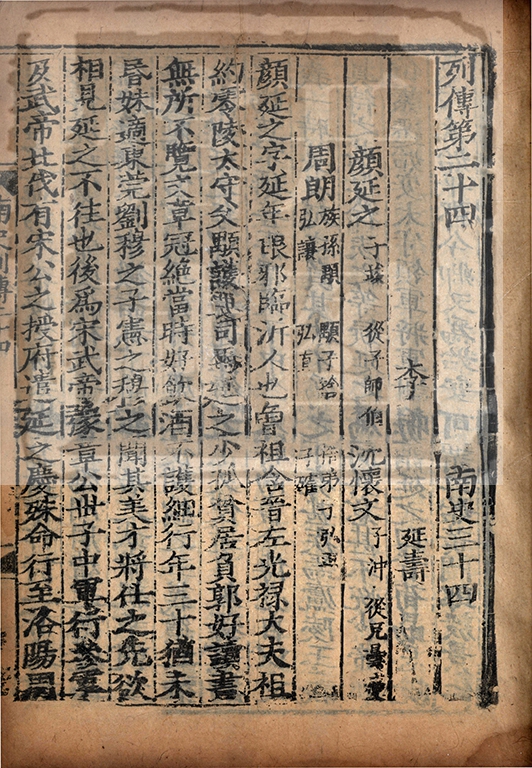 列傳第二十四 南史三十四
李 延壽
顏延之 子竣 從子師伯 沈懷文 子沖 從兄曇慶
周朗 族孫顒 顒子捨 捨弟子弘正 弘讓 弘直 子確
顏延之字延年琅邪臨沂人也曾祖含晉左光祿大夫祖
約零陵太守父顯護軍司馬延之少孤貧居負郭好讀書
無所不覽文章冠絕當時好飲酒不護細行年三十猶未
昏妹適東莞劉穆之子憲之穆之聞其美才將仕之先欲
相見延之不往也後爲宋武帝豫章公世子中軍行參軍
及武帝北伐有宋公之授府遣延之慶殊命行至洛陽周